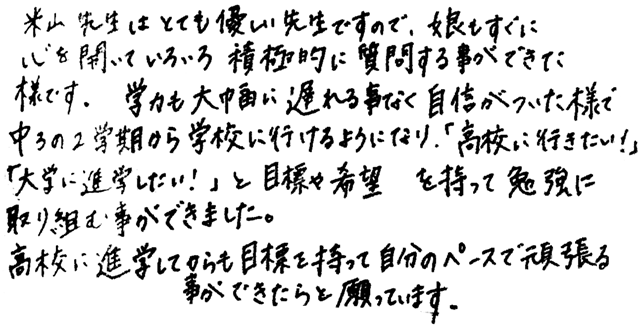 米山先生はとても優しい先生ですので、娘もすぐに
心を開いていろいろ積極的に質問する事ができた
様です。 学力も大幅に遅れる事なく自信がついた様で
中3の2学期から学校に行けるようになり、「高校に行きたい!」
「大学に進学したい!」と目標や希望 を持って勉強に
取り組む事ができました。
高校に進学してからも目標を持って自分のペースで頑張る
事ができたらと願っています。